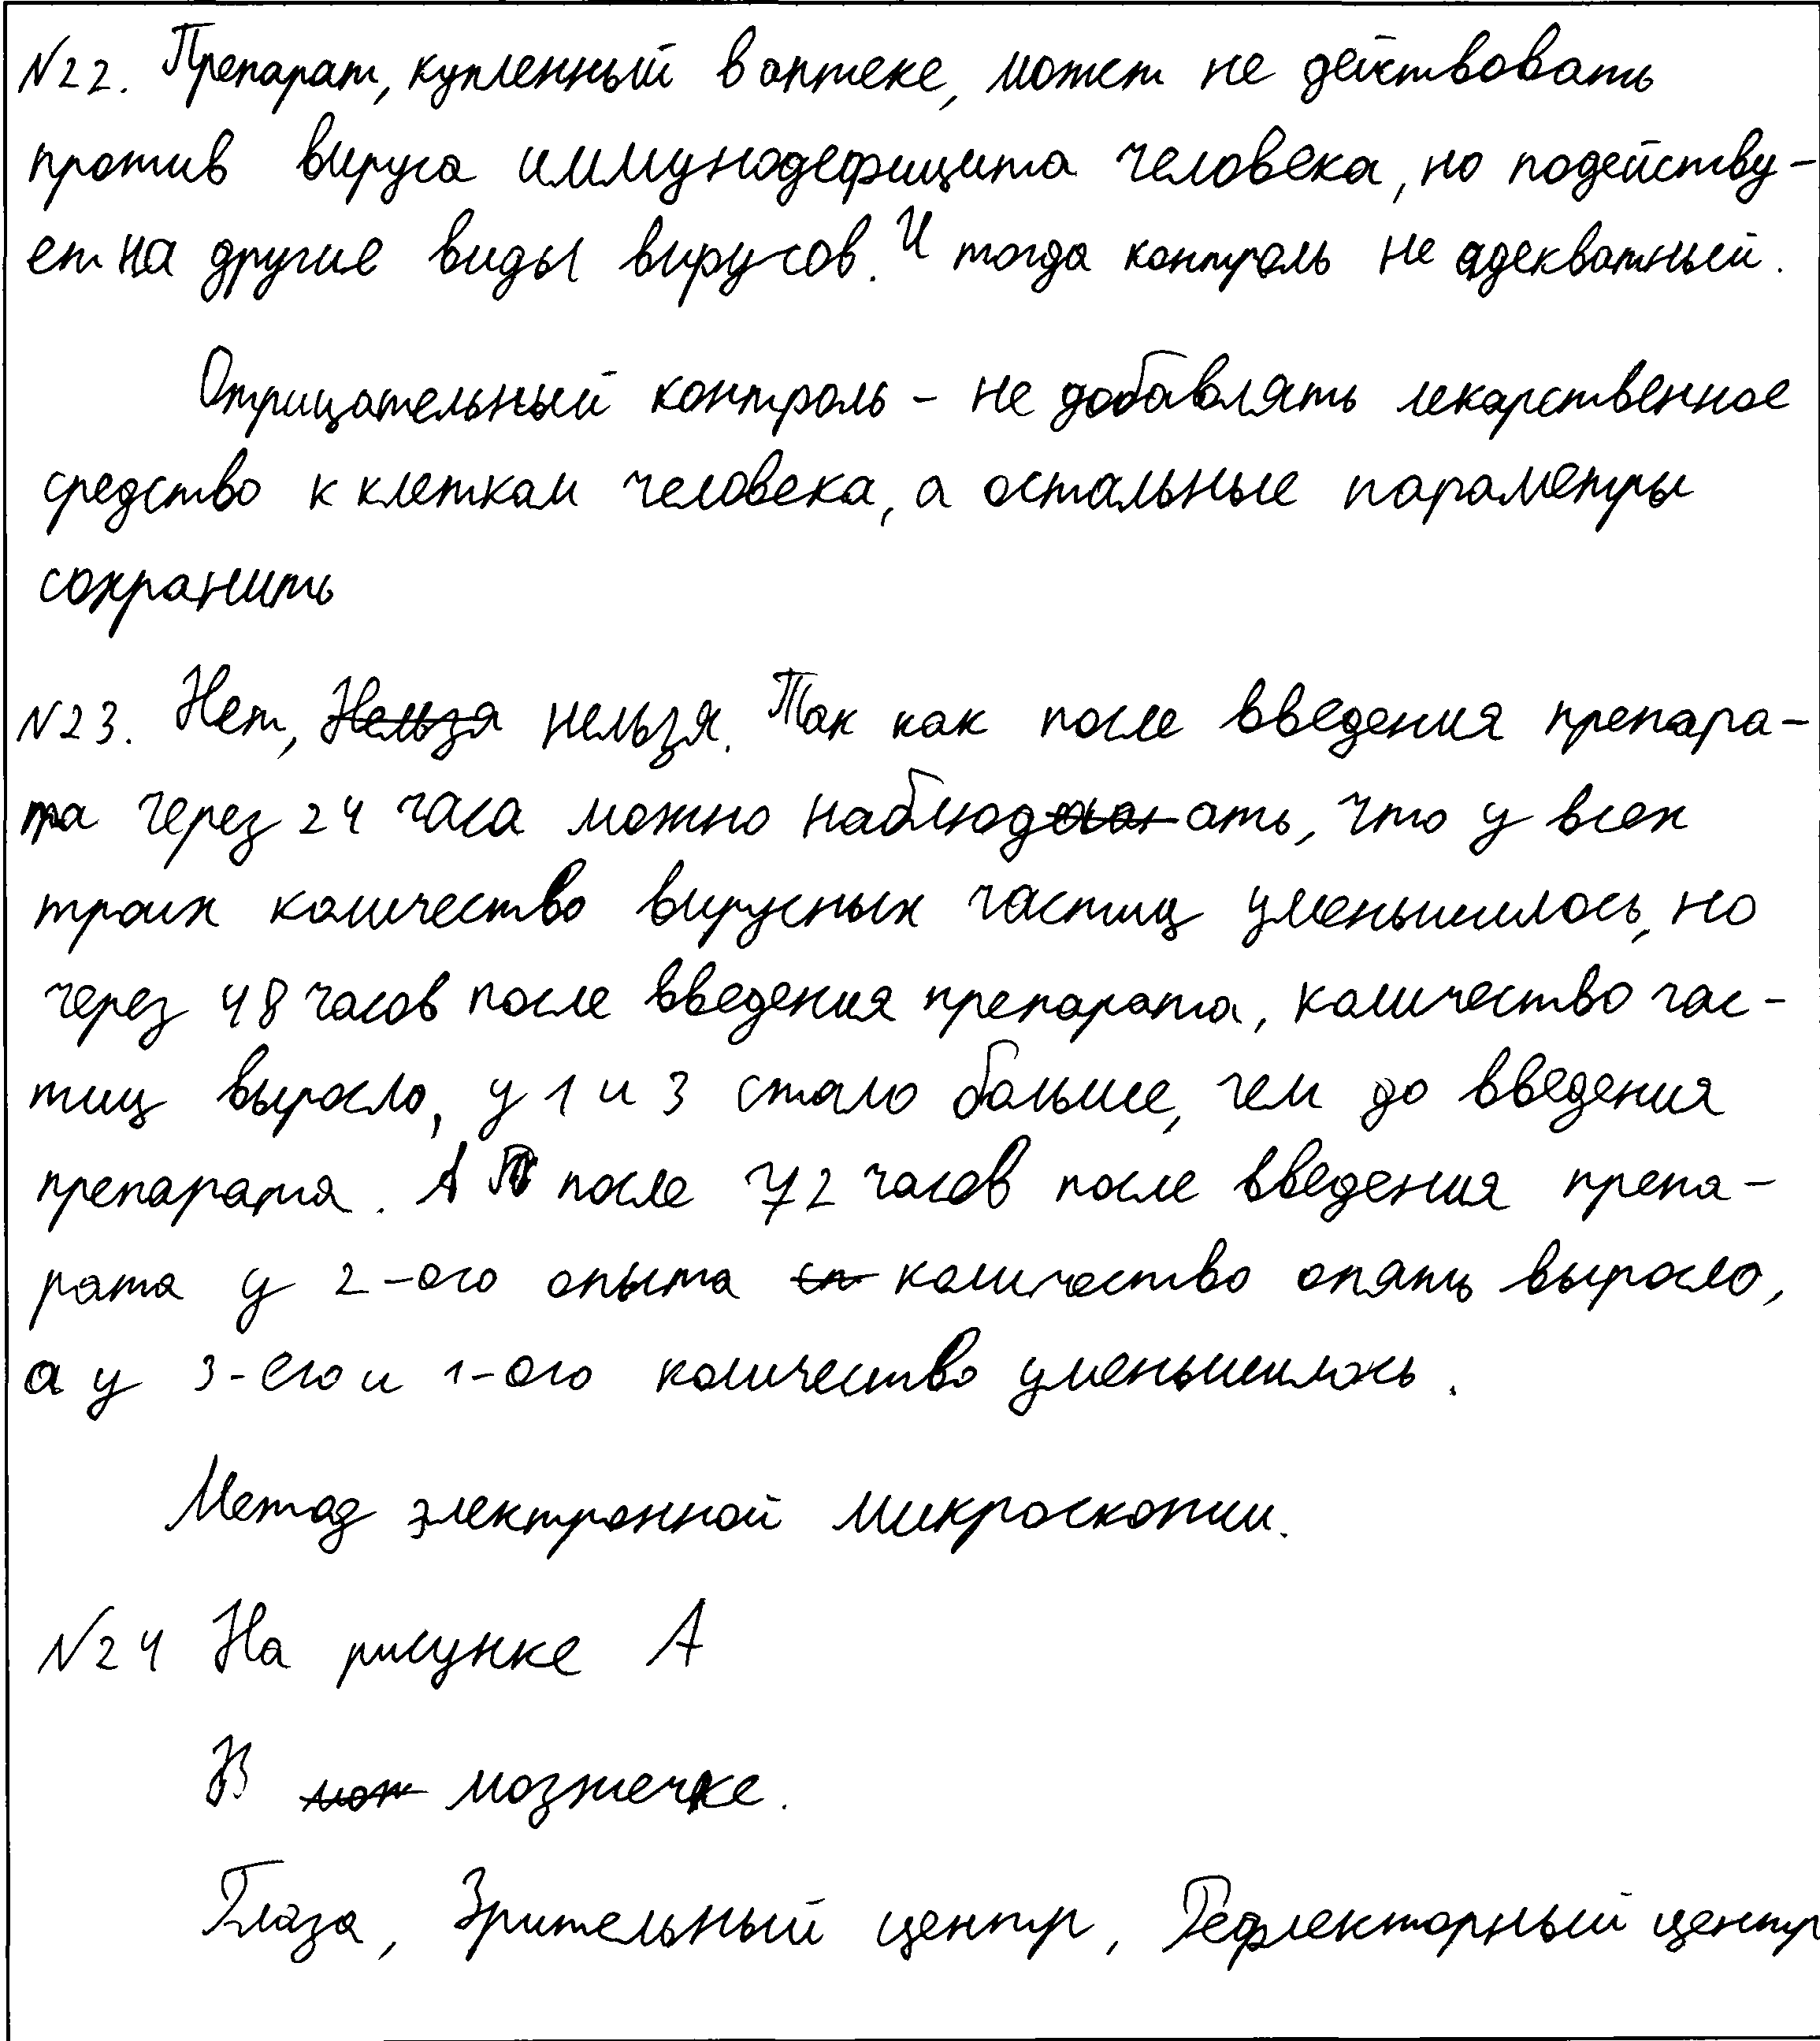 №22. Препарат, купленный в аптеке, может не действовать
против вируса иммунодефицита человека, но подейству-
ет на другие виды вирусов. И тогда контроль не адекватный.
Отрицательный контроль - не добавлять лекарственное
средство к клеткам человека, а остальные параметры
сохранить
№23. Нет, Нельзя нельзя. Так как после введения препара-
та через 24 часа можно наблюдать, что у всех
троих количество вирусных частиц уменьшилось, но
через 48 часов после введения препарата, количество час-
тиц выросло, у 1 и 3 стало больше, чем до введения
препарата. А после 72 часов после введения препа-
рата у 2-ого опыта количество опять выросло,
а у 3-его и 1-ого количество уменьшилось.
Метод электронной микроскопии.
№24 На рисунке А
В мозжечке.
Глаза, Зрительный центр, Рефлекторный центр